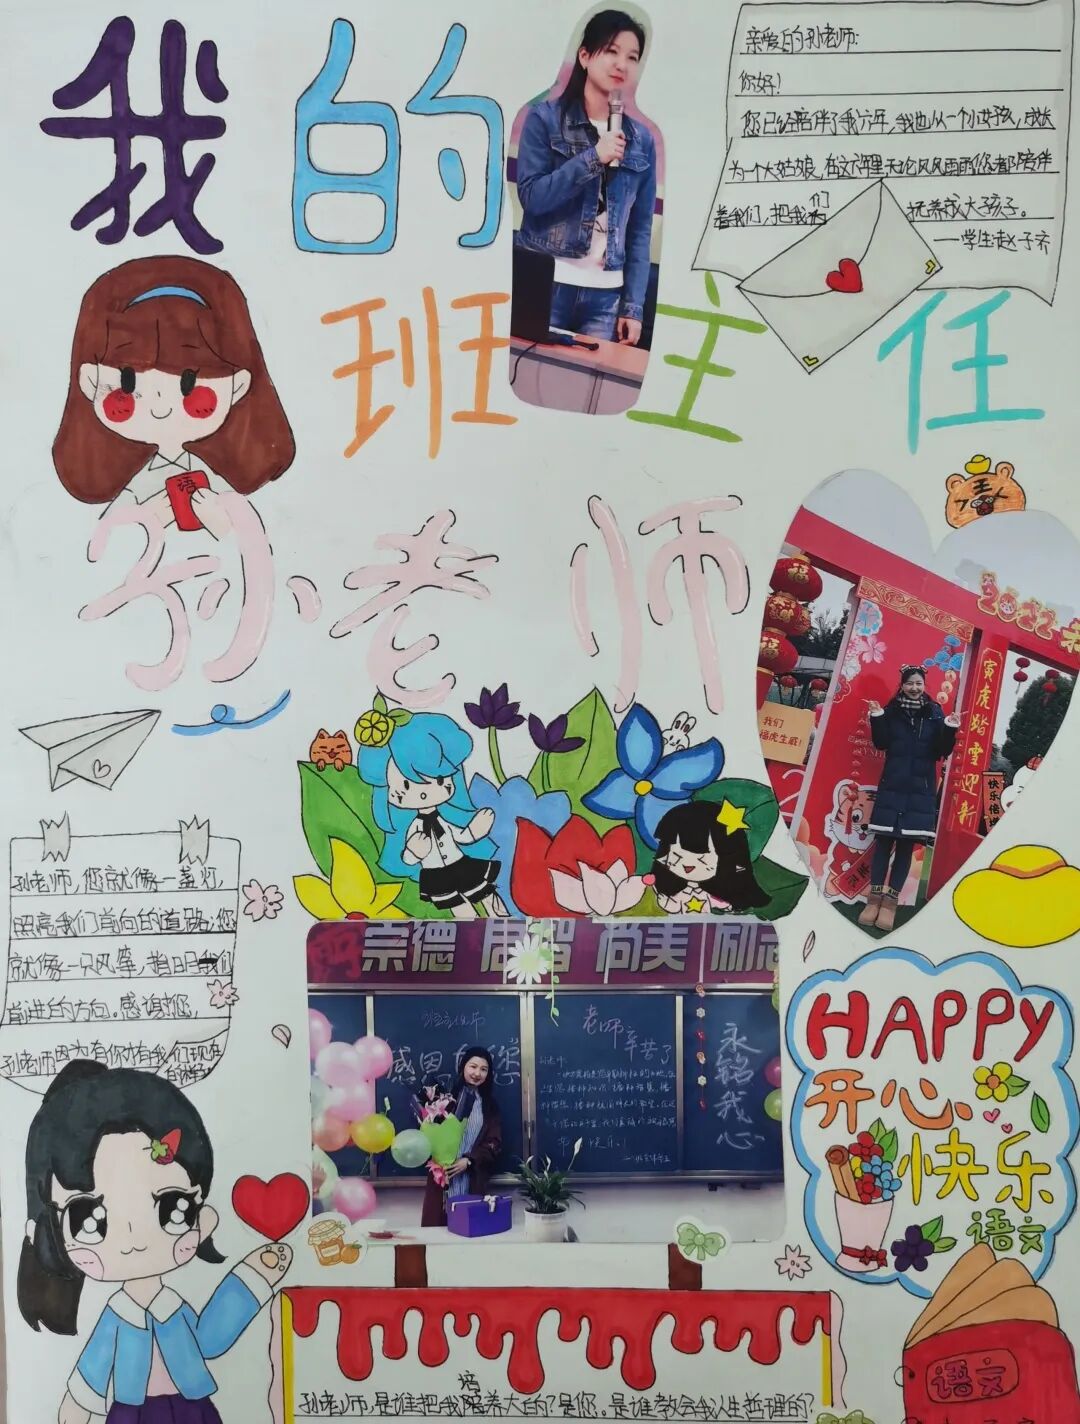 我的
班主任
孙老师
亲爱的孙老师:
你好!
您已经陪伴了我六年,我也从一个小女孩,成长
为一个大姑娘,在这六年里无论风风雨雨您都陪伴
着我们,把我们
抚养成大孩子。
——学生赵子齐
语
福
福
2022
寅虎踏雪迎新
我们
福虎生威!
快乐
孙老师,您就像一盏灯,
照亮我们前向的道路;您
就像一只风筝,指明我们
前进的方向。感谢您,
孙老师因为有你才有我们现在
崇德 唐智 尚美 励志
感恩
您
老师辛苦了
快乐!
永铭我心
HAPPY
开心
快乐
语文
语文
孙老师,是谁把我培养大的?是您。是谁教会我人生哲理的?